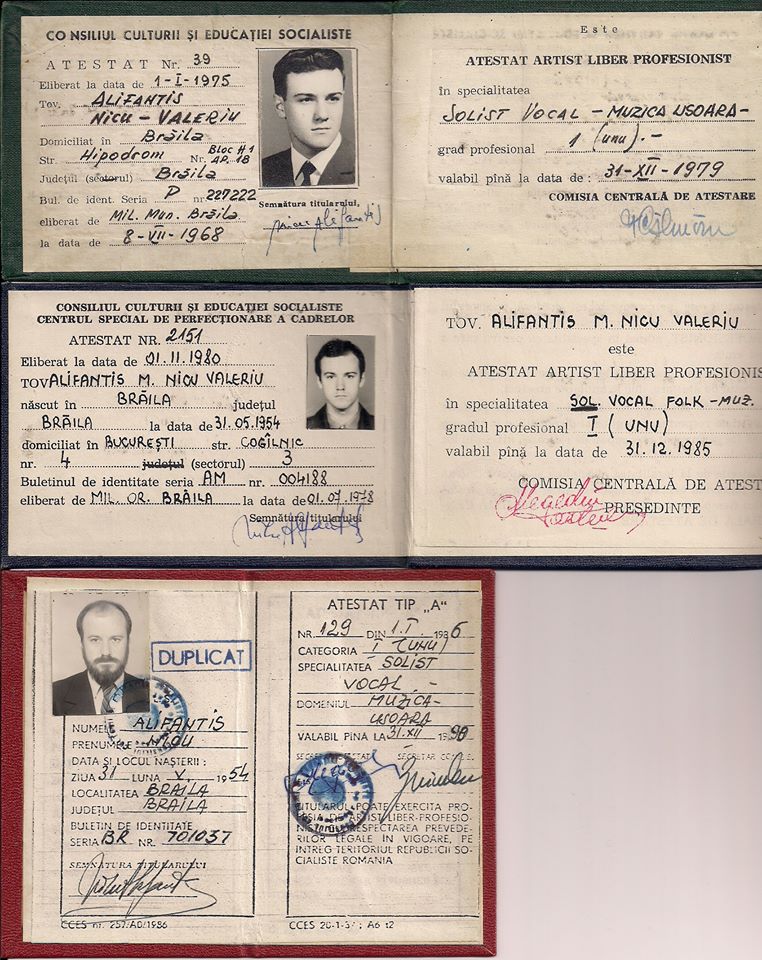 CONSILIUL CULTURII ȘI EDUCAȚIEI SOCIALISTE
ATESTAT Nr. 39
Eliberat la data de 1-I-1975
Tov. ALIFANTIS
NICU-VALERIU
Domiciliat în Brăila
Str. Hipodrom Nr. Bloc H1 AP. 18
Județul (sectorul) Brăila
Bul. de ident. Seria P nr 227222
eliberat de Mil. Mun. Brăila
la data de 8-VII-1968
Semnătura titularului,
Este
ATESTAT ARTIST LIBER PROFESIONIST
în specialitatea
SOLIST VOCAL - MUZICA USOARA-
grad profesional 1 (unu).-
valabil pînă la data de : 31-XII-1979
COMISIA CENTRALĂ DE ATESTARE
CONSILIUL CULTURII ȘI EDUCAȚIEI SOCIALISTE
CENTRUL SPECIAL DE PERFECȚIONARE A CADRELOR
ATESTAT NR. 2151
Eliberat la data de 01.11.1980
TOV ALIFANTIS M. NICU VALERIU
născut în BRĂILA județul
BRĂILA la data de 31.05.1954
domiciliat în BUCUREȘTI str. COGÎLNIC
nr. 4 județul (sectorul) 3
Buletinul de identitate seria AM nr. 004188
eliberat de MIL. OR. BRĂILA la data de 01.07.1978
Semnătura titularului
TOV. ALIFANTIS M. NICU VALERIU
este
ATESTAT ARTIST LIBER PROFESIONIS
în specialitatea SOL. VOCAL FOLK - MUZ.
gradul profesional I (UNU)
valabil pînă la data de 31.12.1985
COMISIA CENTRALA DE ATEST
PREȘEDINTE
DUPLICAT
NUMELE ALIFANTIS
PRENUMELE NICU
DATA ȘI LOCUL NAȘTERII :
ZIUA 31 LUNA V. 1954
LOCALITATEA BRAILA
JUDEȚUL BRAILA
BULETIN DE IDENTITATE
SERIA BR NR. 701037
SEMNATURA TITULARULUI
CCES nr. 257/AD/1986
ATESTAT TIP „A"
NR. 129 DIN 1.I. 1986
CATEGORIA I (UNU)
SPECIALITATEA SOLIST
VOCAL.-
DOMENIUL MUZICA-
USOARA
VALABIL PINA LA 31.XII 1990
TITULARUL POATE EXERCITA PRO-
FESIA DE ARTIST LIBER-PROFESIO-
NIST RESPECTAREA PREVEDE-
RILOR LEGALE ÎN VIGOARE, PE
INTREG TERITORIUL REPUBLICII SO-
CIALISTE ROMANIA